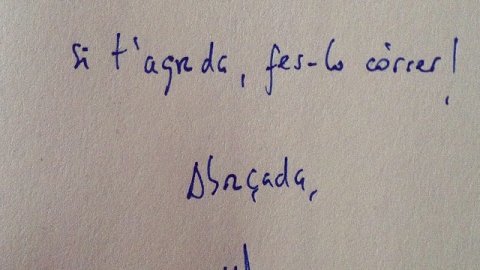 si t'agrada, fes-lo córrer!
Abraçada,